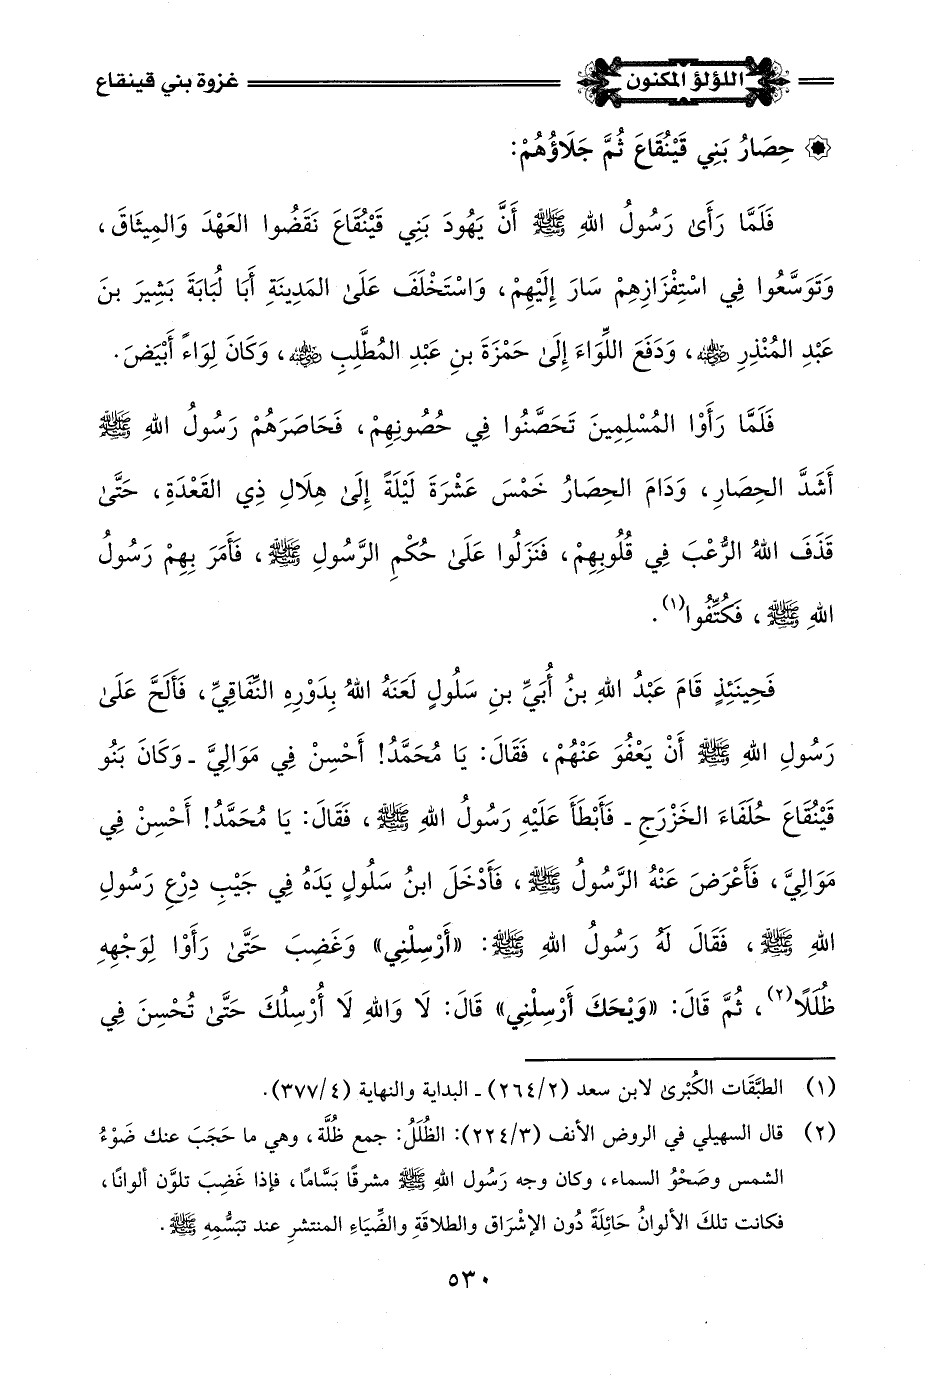 اللؤلؤ المكنون غزوة بني قينقاع
حِصَارُ بَنِي قَيْنُقَاعَ ثُمَّ جَلَاؤُهُمْ:
فَلَمَّا رَأَىٰ رَسُولُ اللهِ ﷺ أَنَّ يَهُودَ بَنِي قَيْنُقَاعَ نَقَضُوا العَهْدَ وَالمِيثَاقَ،
وَتَوَسَّعُوا فِي اسْتِفْزَازِهِمْ سَارَ إِلَيْهِمْ، وَاسْتَخْلَفَ عَلَىٰ المَدِينَةِ أَبَا لُبَابَةَ بَشِيرَ بنَ
عَبْدِ المُنْذِرِ رضي الله عنه، وَدَفَعَ اللِّوَاءَ إِلَىٰ حَمْزَةَ بنِ عَبْدِ المُطَّلِبِ رضي الله عنه، وَكَانَ لِوَاءً أَبْيَضَ.
فَلَمَّا رَأَوْا المُسْلِمِينَ تَحَصَّنُوا فِي حُصُونِهِمْ، فَحَاصَرَهُمْ رَسُولُ اللهِ ﷺ
أَشَدَّ الحِصَارِ، وَدَامَ الحِصَارُ خَمْسَ عَشْرَةَ لَيْلَةً إِلَىٰ هِلَالِ ذِي القَعْدَةِ، حَتَّىٰ
قَذَفَ اللهُ الرُّعْبَ فِي قُلُوبِهِمْ، فَنَزَلُوا عَلَىٰ حُكْمِ الرَّسُولِ ﷺ، فَأَمَرَ بِهِمْ رَسُولُ
اللهِ ﷺ، فَكُتِّفُوا(١).
فَحِينَئِذٍ قَامَ عَبْدُ اللهِ بنُ أُبَيِّ بنِ سَلُولٍ لَعَنَهُ اللهُ بِدَوْرِهِ النِّفَاقِيِّ، فَأَلَحَّ عَلَىٰ
رَسُولِ اللهِ ﷺ أَنْ يَعْفُوَ عَنْهُمْ، فَقَالَ: يَا مُحَمَّدُ! أَحْسِنْ فِي مَوَالِيَّ ـ وَكَانَ بَنُو
قَيْنُقَاعَ حُلَفَاءَ الخَزْرَجِ ـ فَأَبْطَأَ عَلَيْهِ رَسُولُ اللهِ ﷺ، فَقَالَ: يَا مُحَمَّدُ! أَحْسِنْ فِي
مَوَالِيَّ، فَأَعْرَضَ عَنْهُ الرَّسُولُ ﷺ، فَأَدْخَلَ ابنُ سَلُولٍ يَدَهُ فِي جَيْبِ دِرْعِ رَسُولِ
اللهِ ﷺ، فَقَالَ لَهُ رَسُولُ اللهِ ﷺ: «أَرْسِلْنِي» وَغَضِبَ حَتَّىٰ رَأَوْا لِوَجْهِهِ
ظُلَلًا(٢)، ثُمَّ قَالَ: «وَيْحَكَ أَرْسِلْنِي» قَالَ: لَا وَاللهِ لَا أُرْسِلُكَ حَتَّىٰ تُحْسِنَ فِي
(١) الطبَّقَات الكُبْرىٰ لابن سعد (٢/٢٦٤) ـ البداية والنهاية (٤/٣٧٧).
(٢) قال السهيلي في الروض الأنف (٣/٢٢٤): الظُلَلُ: جمع ظُلَّة، وهي ما حَجَبَ عنك ضَوْءُ
الشمس وصَحْوُ السماء، وكان وجه رَسُول اللهِ ﷺ مشرقًا بَسَّامًا، فإذا غَضِبَ تلوَّن ألوانًا،
فكانت تلكَ الألوانُ حَائِلَةً دُون الإشْرَاق والطلاقَةِ والضِّيَاءِ المنتشرِ عند تبَسُّمِهِ ﷺ.
٥٣٠